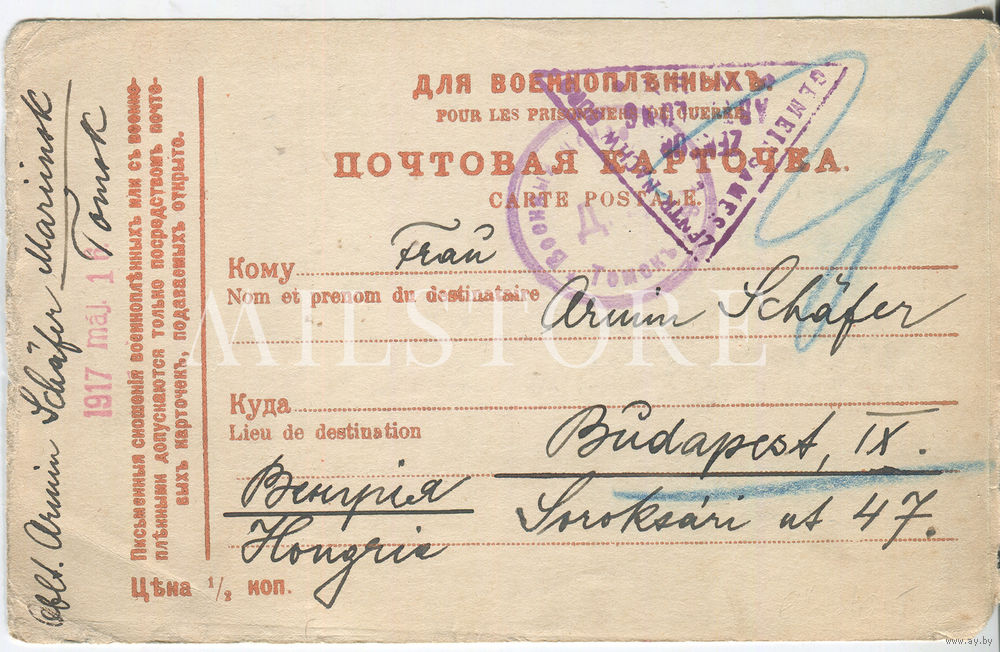 ДЛЯ ВОЕННОПЛѢННЫХЪ.
POUR LES PRISONNIERS DE GUERRE
ПОЧТОВАЯ КАРТОЧКА.
CARTE POSTALE.
Кому
Frau
Nom et prenom du destinataire
Armin Schäfer
Куда
Lieu de destination
Budapest, IX.
Венгрія
Soroksári ut 47.
Hongrie
Цѣна 1/2 коп.
Письменныя сношенія военноплѣнныхъ или съ военно-
плѣнными допускаются только посредствомъ почто-
выхъ карточекъ, подаваемыхъ открыто.
1917 máj. 16.
Oblt. Armin Schäfer Mariinsk
Tomsk
GEMEINSAMES
ZENTR-NACHW
Военных
Д
MILSTORE
www.ay.by